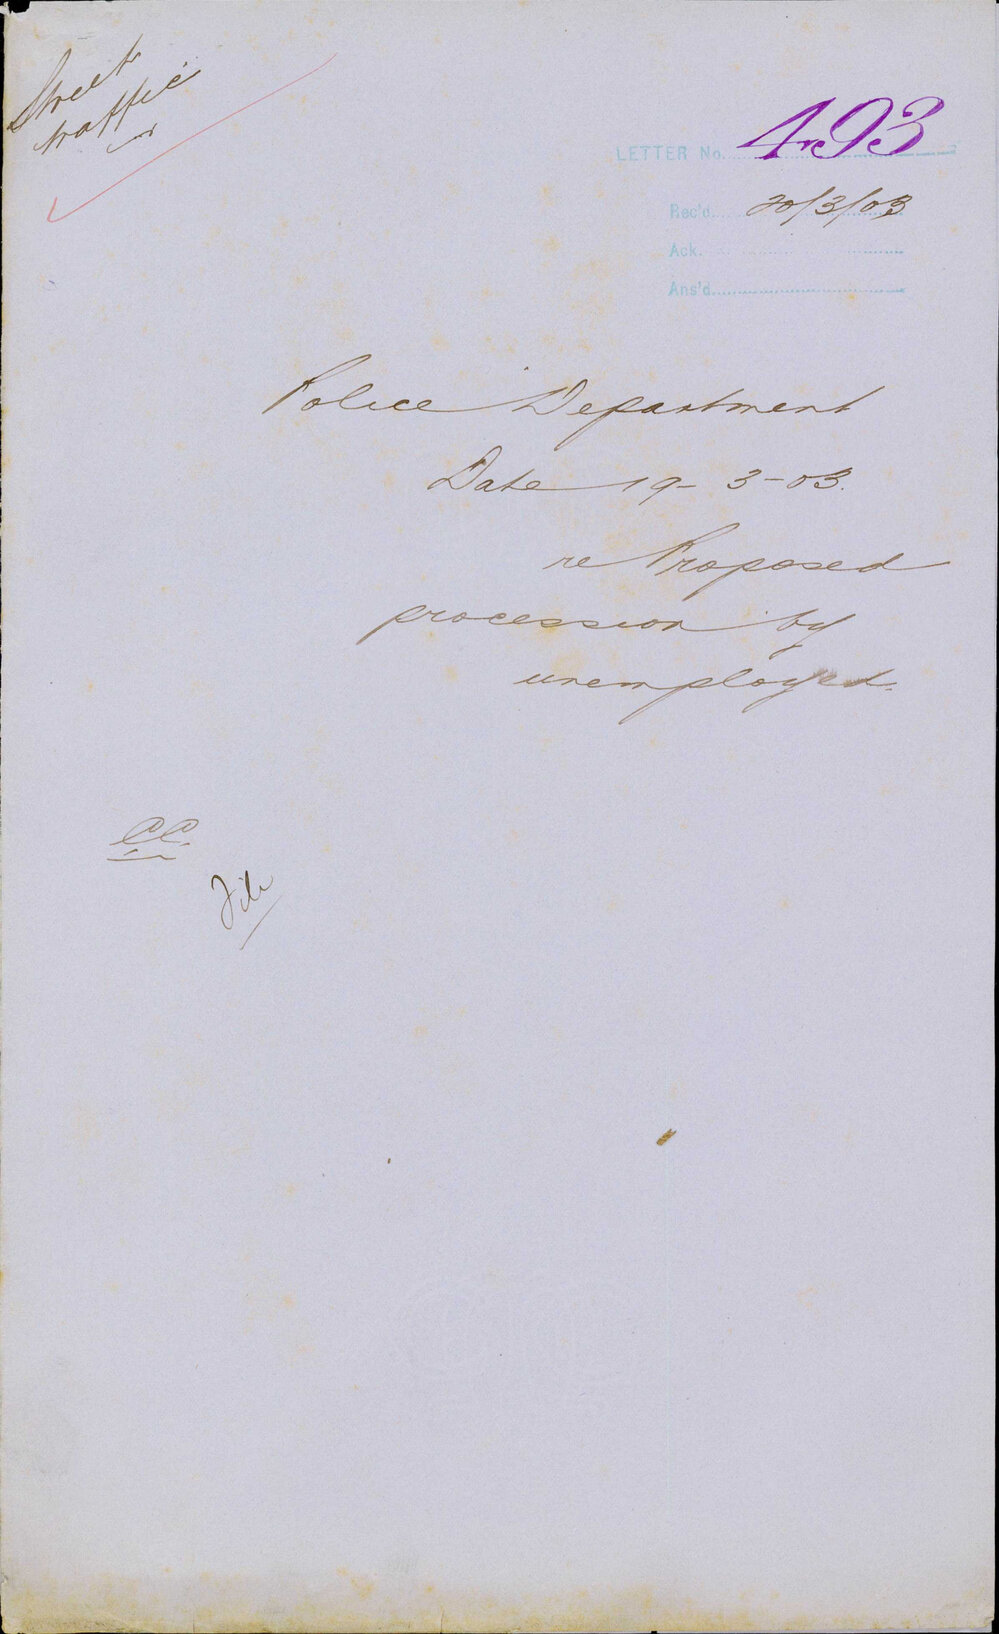 Street
traffic
LETTER No. 493
Rec'd. 20/3/03
Ack.
Ans'd.
Police Department
Date 19-3-03.
re Proposed
procession by
unemployed.
CC.
File